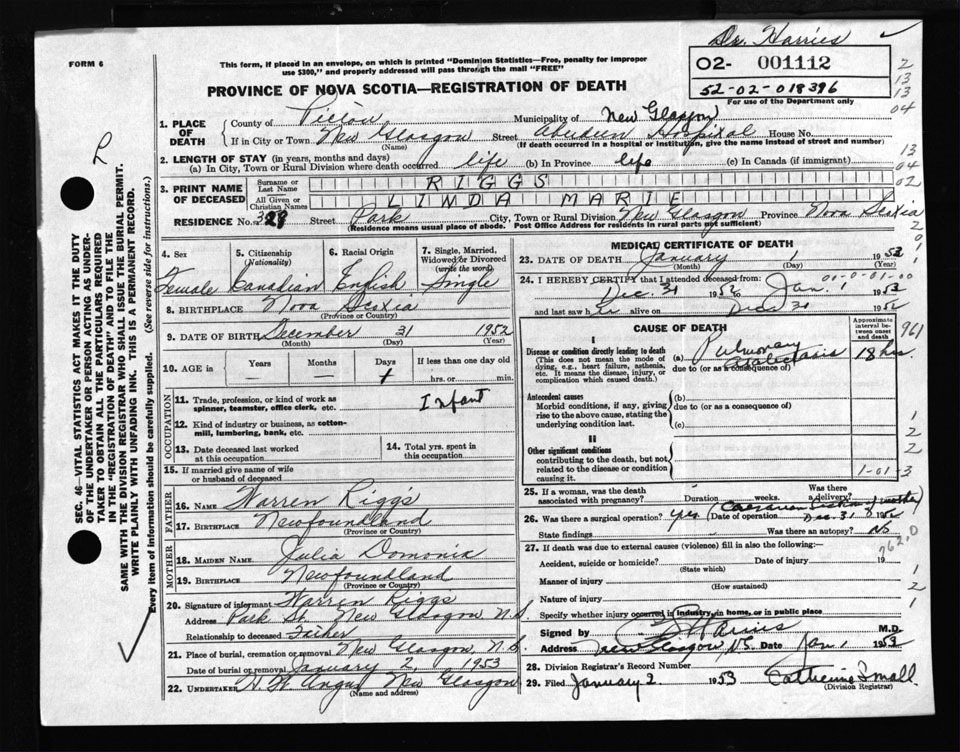 Dr. Harries
FORM 6
This form, if placed in an envelope, on which is printed "Dominion Statistics—Free, penalty for improper
use $300," and properly addressed will pass through the mail "FREE"
O2- 001112
52-02-018396
For use of the Department only
2
13
13
04
PROVINCE OF NOVA SCOTIA—REGISTRATION OF DEATH
1. PLACE OF DEATH
County of Pictou Municipality of New Glasgow
If in City or Town New Glasgow Street Aberdeen Hospital House No.
(Name) (If death occurred in a hospital or institution, give the name instead of street and number)
2. LENGTH OF STAY (in years, months and days)
(a) In City, Town or Rural Division where death occurred life (b) In Province life (c) In Canada (if immigrant)
13
04
02
3. PRINT NAME OF DECEASED
Surname or Last Name RIGGS
All Given or Christian Names LINDA MARIE
RESIDENCE No. 328 Street Park City, Town or Rural Division New Glasgow Province Nova Scotia
(Residence means usual place of abode. Post Office Address for residents in rural parts not sufficient)
4. Sex
Female
5. Citizenship (Nationality)
Canadian
6. Racial Origin
English
7. Single, Married, Widowed or Divorced (write the word)
Single
8. BIRTHPLACE Nova Scotia
(Province or Country)
9. DATE OF BIRTH December 31 1952
(Month) (Day) (Year)
10. AGE in Years Months Days If less than one day old
— — 1 hrs. or min.
OCCUPATION
11. Trade, profession, or kind of work as
spinner, teamster, office clerk, etc. Infant
12. Kind of industry or business, as cotton-
mill, lumbering, bank, etc.
13. Date deceased last worked
at this occupation
14. Total yrs. spent in
this occupation
15. If married give name of wife
or husband of deceased
FATHER
16. NAME Warren Riggs
17. BIRTHPLACE Newfoundland
(Province or Country)
MOTHER
18. MAIDEN NAME Julia
19. BIRTHPLACE Newfoundland
(Province or Country)
20. Signature of informant Warren Riggs
Address Park St. New Glasgow N.S.
Relationship to deceased Father
21. Place of burial, cremation or removal New Glasgow, N.S.
Date of burial or removal January 2, 1953
22. UNDERTAKER Angus New Glasgow
(Name and address)
MEDICAL CERTIFICATE OF DEATH
23. DATE OF DEATH January 1 1953
(Month) (Day) (Year)
00-0-01-00
24. I HEREBY CERTIFY that I attended deceased from:
Dec. 31 1952 to Jan. 1 1953
and last saw her alive on Dec 1952
CAUSE OF DEATH
Approximate interval between onset and death
961
I
Disease or condition directly leading to death
(This does not mean the mode of
dying, e.g., heart failure, asthenia,
etc. It means the disease, injury, or
complication which caused death.)
(a) Pulmonary Atelectasis 18 hrs.
due to (or as a consequence of)
Antecedent causes
Morbid conditions, if any, giving
rise to the above cause, stating the
underlying condition last.
(b)
due to (or as a consequence of)
(c)
II
Other significant conditions
contributing to the death, but not
related to the disease or condition
causing it.
1-01-3
25. If a woman, was the death
associated with pregnancy? Duration weeks. Was there a delivery?
(Caesarian Section of mother)
26. Was there surgical operation? yes Date of operation Dec. 31 1952
State findings Was there an autopsy? No
762.0
27. If death was due to external causes (violence) fill in also the following:—
Accident, suicide or homicide? Date of injury 19
(State which)
Manner of injury
(How sustained)
Nature of injury
Specify whether injury occurred in industry, in home, or in public place
Signed by Harries M.D.
Address New Glasgow, N.S. Date Jan. 1 1953
28. Division Registrar's Record Number
29. Filed January 2 1953 Catherine Small
(Division Registrar)
SEC. 46—VITAL STATISTICS ACT MAKES IT THE DUTY
OF THE UNDERTAKER OR PERSON ACTING AS UNDER-
TAKER TO OBTAIN ALL THE PARTICULARS REQUIRED
IN THE "REGISTRATION OF DEATH" AND TO FILE THE
SAME WITH THE DIVISION REGISTRAR WHO SHALL ISSUE THE BURIAL PERMIT.
WRITE PLAINLY WITH UNFADING INK. THIS IS A PERMANENT RECORD.
Every item of information should be carefully supplied. (See reverse side for instructions.)